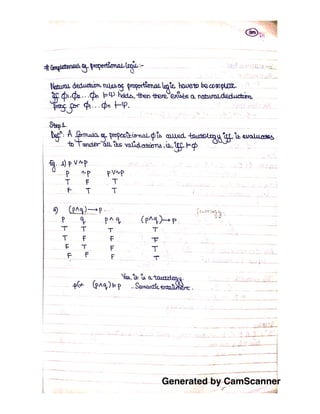 # Completeness of propertional logic :-
Natural deduction rules of propertional logic have to be complete
iff φ1, φ2 ... φn ⊨ ψ holds, then there exists a natural deduction
proof for φ1 ... φn ⊢ ψ.
Step 1
Defⁿ: A formula of propositional φ is called tautology iff. it evaluates
to T under all its valuations, ie, iff. ⊨ φ
Eg. 1) p ∨ ~p
P ~P P∨~P
T F T
F T T
2) (p∧q) → p.
P q p∧q (p∧q)→p.
T T T T
T F F T
F T F T
F F F T
Yes, it is a tautology.
(p∧q) ⊨ p . Semantic entailment.
Generated by CamScanner